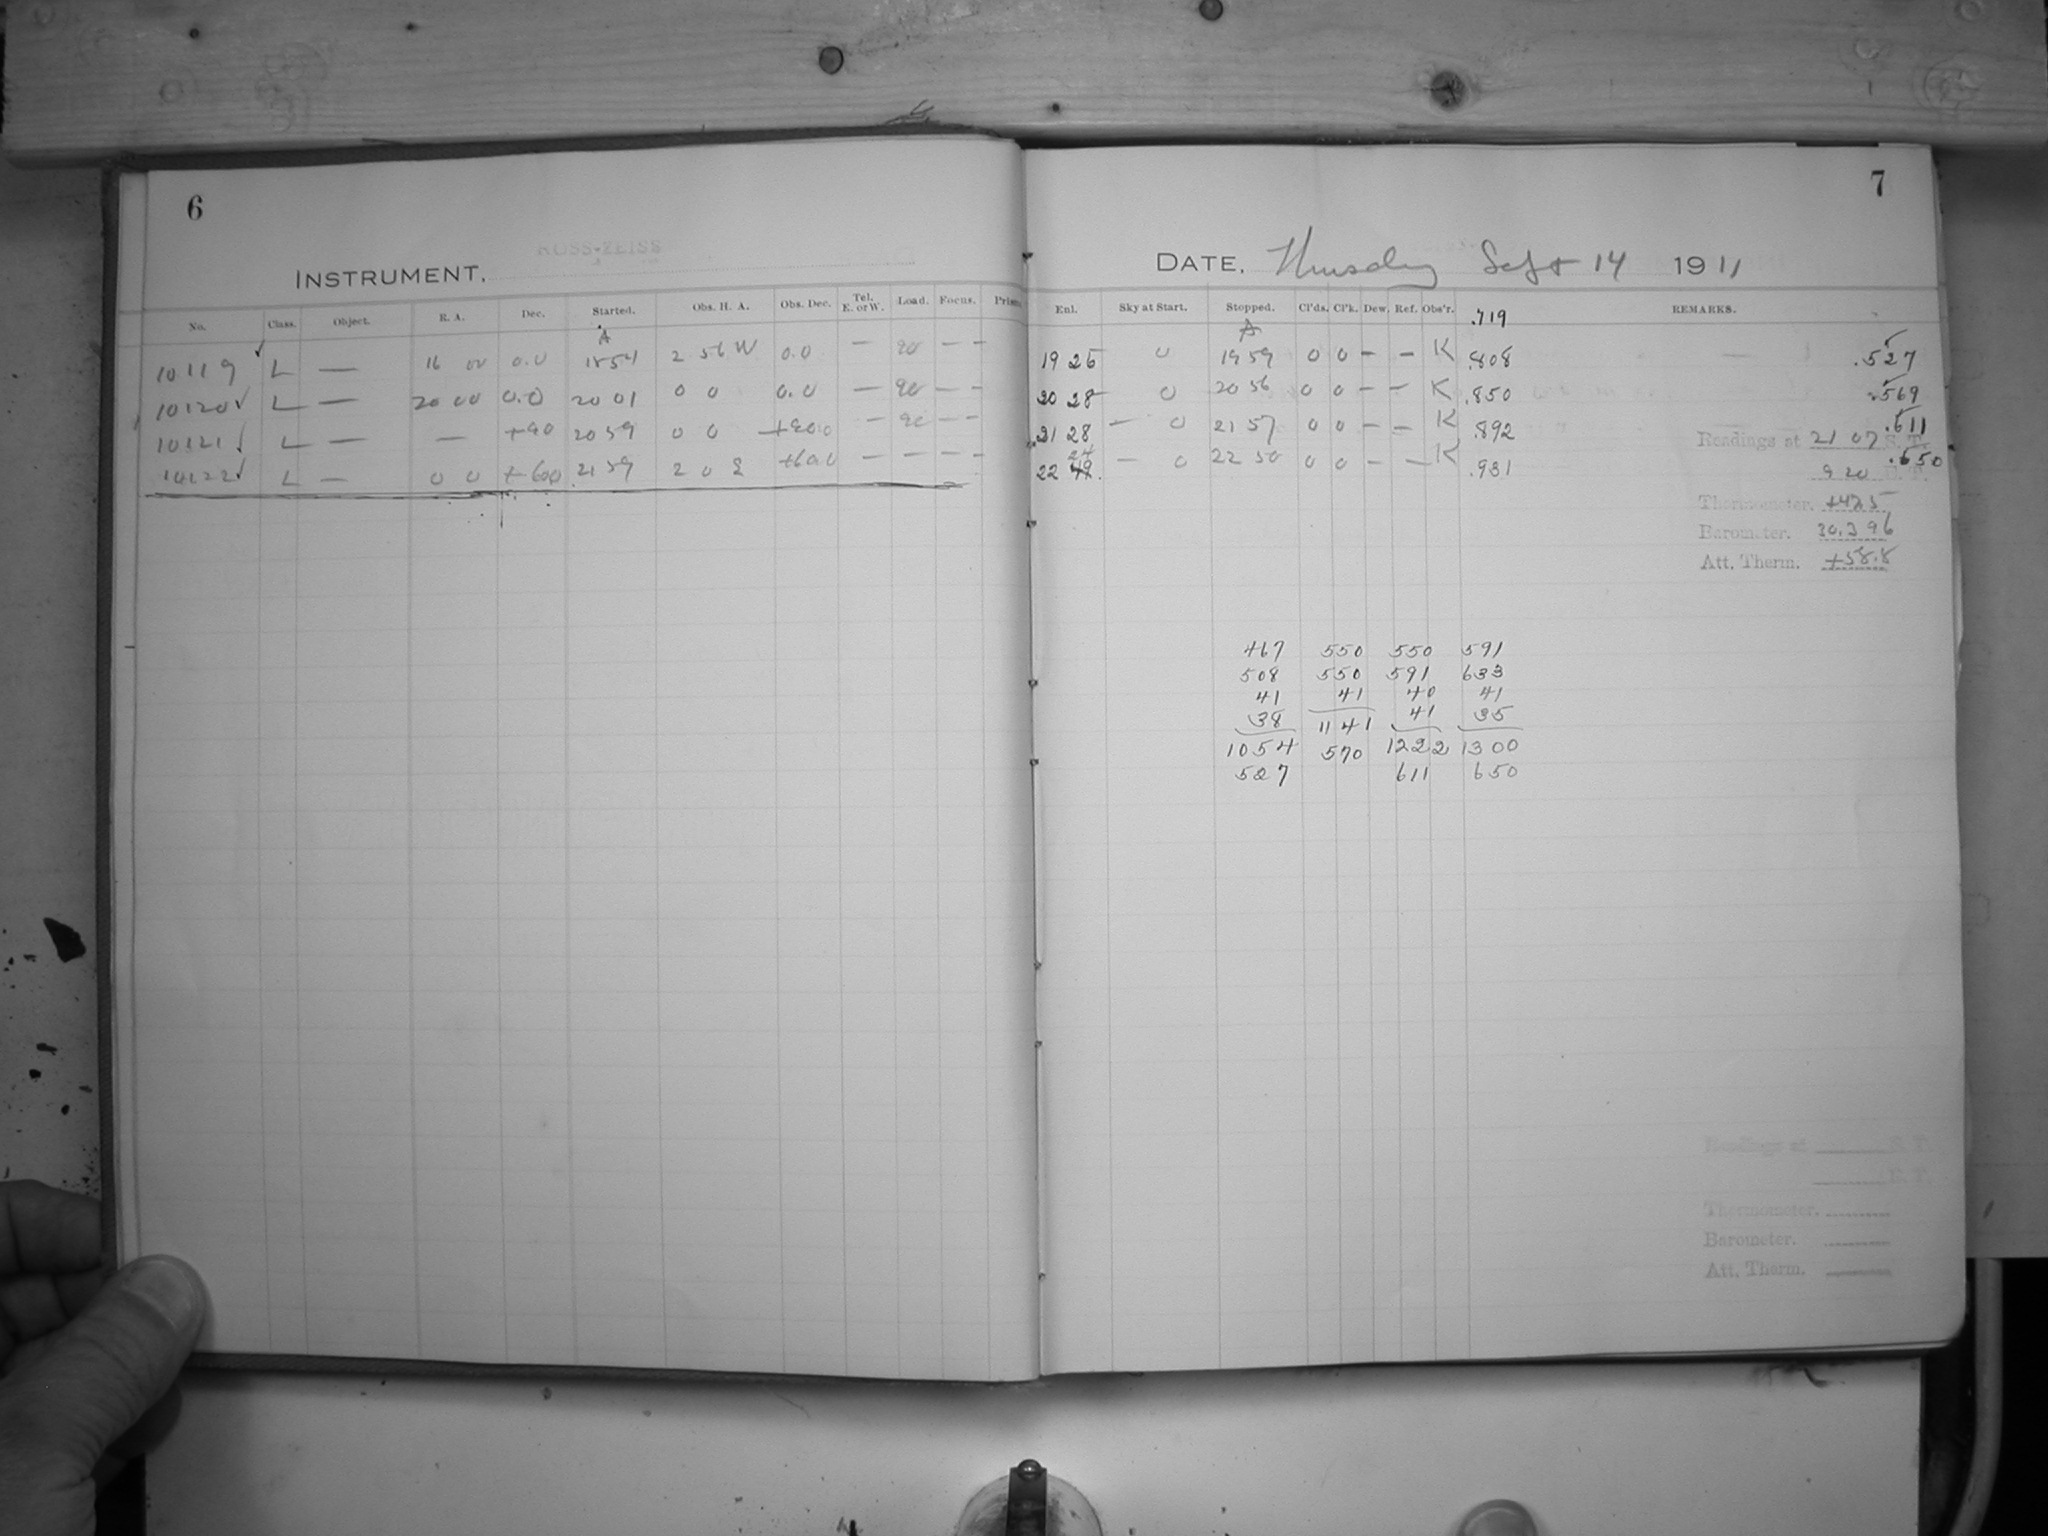 6
ROSS-ZEISS
INSTRUMENT.
No. Class. Object. R. A. Dec. Started. Obs. H. A. Obs. Dec. Tel. E. or W. Load. Focus. Prism
A
10119 ✓ L — 16 00 0.0 1854 2 56 W 0.0 — 20 — —
10120 ✓ L — 20 00 0.0 20 01 0 0 0.0 — 20 — —
10121 ✓ L — — +90 20 59 0 0 +90.0 — 20 — —
10122 ✓ L — 0 0 +600 21 59 2 0 E +60.0 — — — —
7
DATE. Thursday Sept 14 1911
Enl. Sky at Start. Stopped. Cl'ds. Cl'k. Dew. Ref. Obs'r. .719 REMARKS.
A
19 26 0 19 59 0 0 — — K .808 — .527
20 28 0 20 56 0 0 — — K .850 .569
21 28 — 0 21 57 0 0 — — K .892 .611
Readings at 21 07 S. T.
22 24 — 0 22 50 0 0 — — K .931 .650
9 20 E. T.
Thermometer. +42.5
Barometer. 30.396
Att. Therm. +58.8
467 550 550 591
508 550 591 633
41 41 40 41
38 1141 41 35
1054 570 1222 1300
527 611 650
Readings at S. T.
E. T.
Thermometer.
Barometer.
Att. Therm.